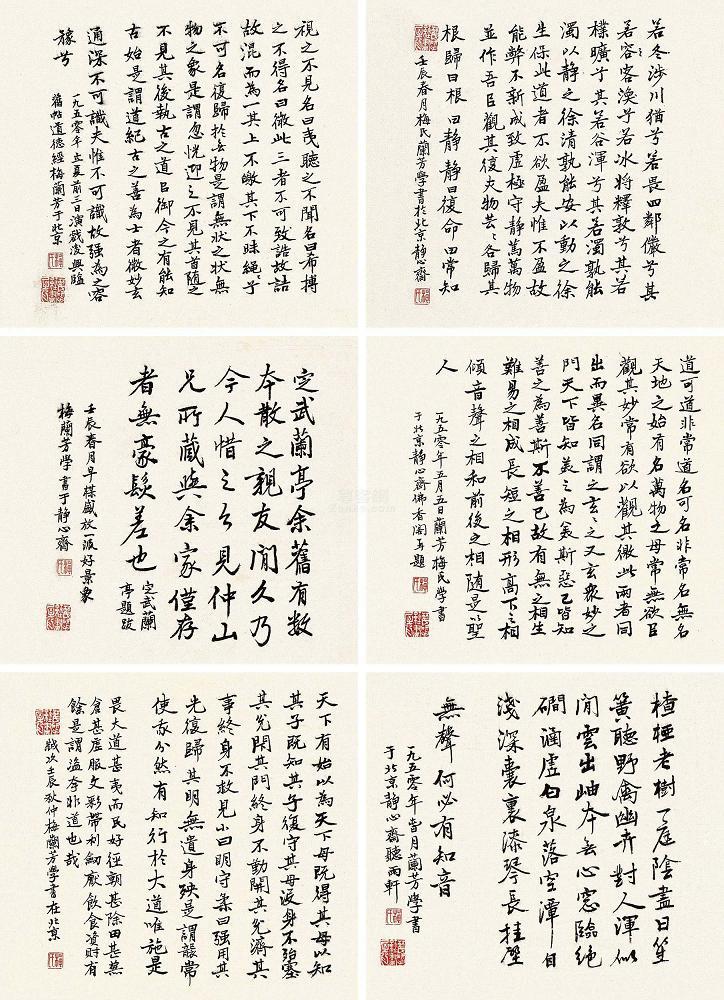 視之不見名曰夷聽之不聞名曰希搏
之不得名曰微此三者不可致詰故詰
故混而為一其上不皦其下不昧繩乎
不可名復歸於無物是謂無狀之狀無
物之象是謂忽恍迎之不見其首隨之
不見其後執古之道以御今之有能知
古始是謂道紀古之善為士者微妙玄
通深不可識夫惟不可識故强為之容
豫兮
一九五零年立夏前三日演戲後興臨
舊帖道德經梅蘭芳于北京
若冬涉川猶兮若畏四鄰儼兮其
若容客渙乎若冰將釋敦兮其若
樸曠乎其若谷渾兮其若濁孰能
濁以静之徐清孰能安以動之徐
生保此道者不欲盈夫惟不盈故
能弊不新成致虛極守静篤萬物
並作吾以觀其復夫物芸芸各歸其
根歸曰根曰静静曰復命曰常知
壬辰春月梅氏蘭芳學書於北京静心齋
定武蘭亭余舊有數
本散之親友間久乃
今人惜之以見仲山
兄所藏與余家僅存
者無豪髮差也
定武蘭
亭題跋
壬辰春月早楳盛放一派好景象
梅蘭芳學書于静心齋
道可道非常道名可名非常名無名
天地之始有名萬物之母常無欲以
觀其妙常有欲以觀其徼此兩者同
出而異名同謂之玄玄之又玄衆妙之
門天下皆知美之為美斯惡已皆知
善之為善斯不善已故有無之相生
難易之相成長短之相形高下之相
傾音聲之相和前後之相隨是以聖
人
一九五零年五月五日蘭芳梅氏學書
于北京静心齋佛香閣再題
天下有始以為天下母既得其母以知
其子既知其子復守其母沒身不殆塞
其兌閉其門終身不勤開其兌濟其
事終身不救見小曰明守柔曰强用其
光復歸其明無遺身殃是謂襲常
使我介然有知行於大道唯施是
畏大道甚夷而民好徑朝甚除田甚蕪
倉甚虛服文彩帶利劍厭飲食資財有
餘是謂盜夸非道也哉
戲次壬辰秋仲梅蘭芳學書在北京
楂枒老樹了庭陰盡日笙
簧聽野禽幽卉對人渾似
閒雲出岫本無心窗臨絶
磵涵虛白泉落空潭自
淺深囊裏漆琴長挂壁
無聲何必有知音
一九五零年月蘭芳學書
于北京静心齋聽雨軒